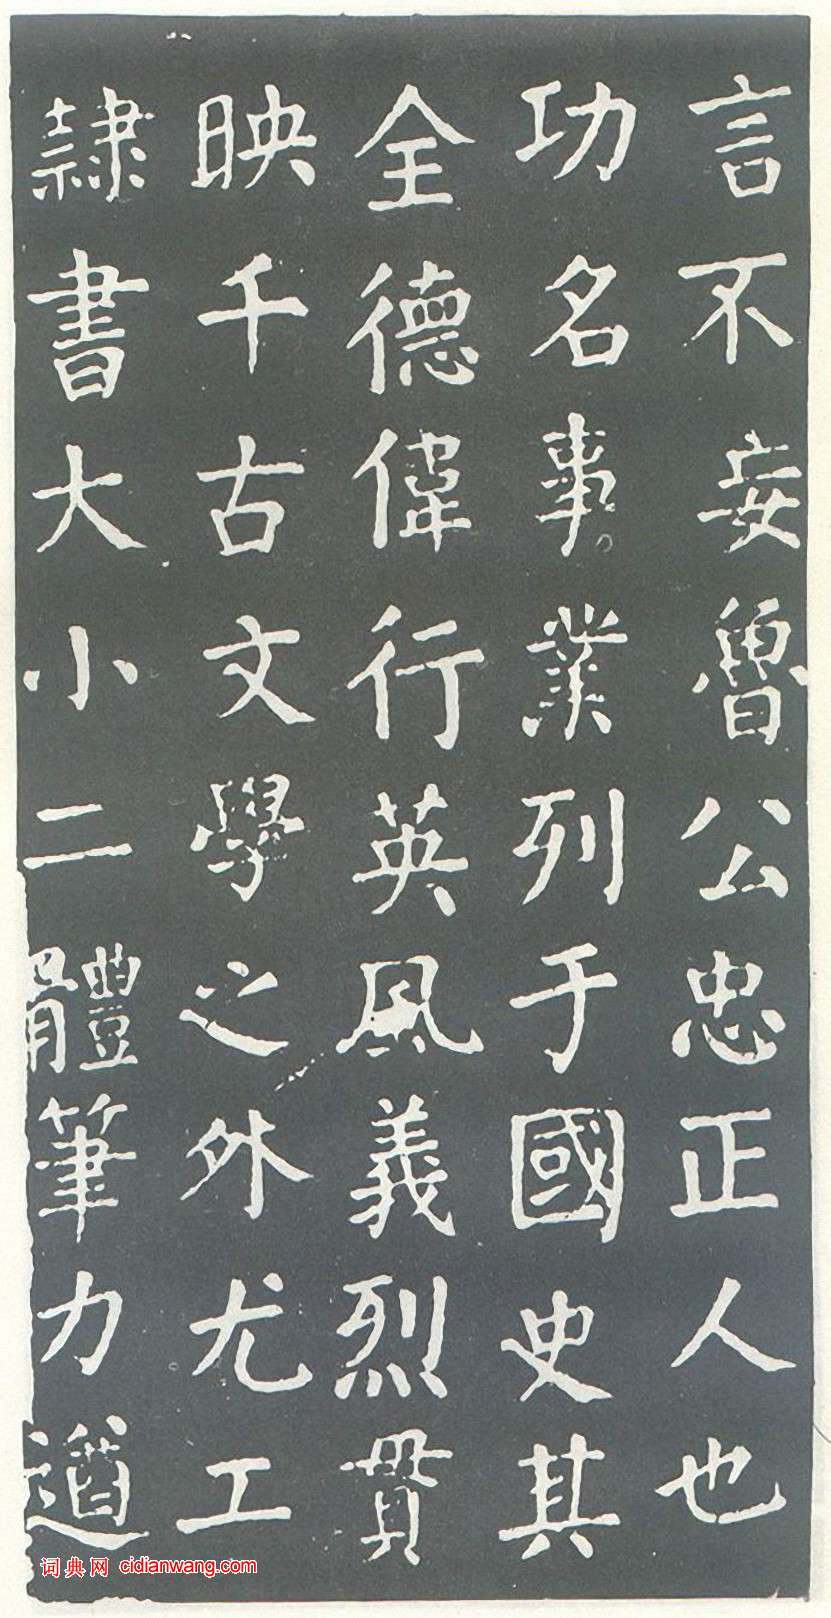 言不妄魯公忠正人也
功名事業列于國史其
全德偉行英風義烈貫
映千古文學之外尤工
隸書大小二體筆力遒
词典网 cidianwang.com